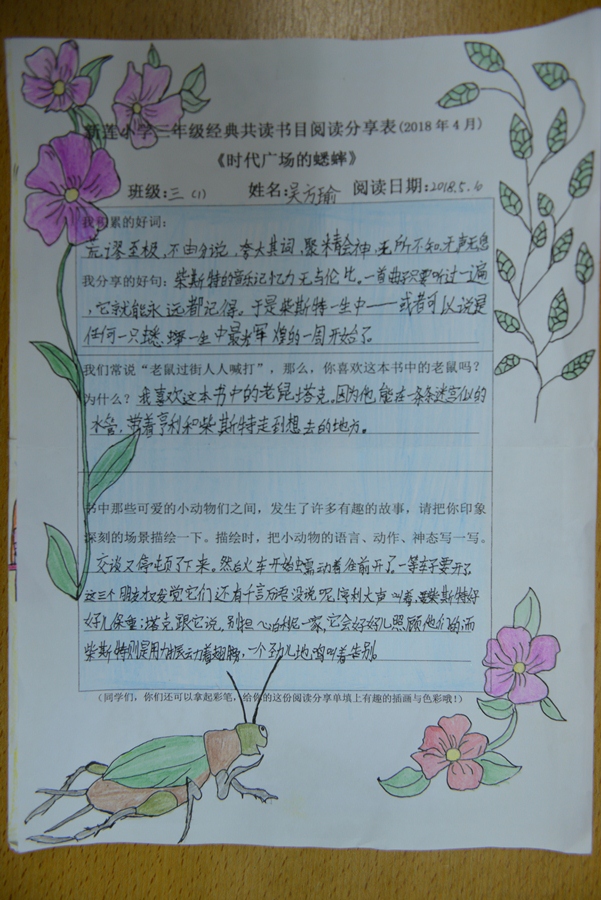 新莲小学三年级经典共读书目阅读分享表(2018年4月)
《时代广场的蟋蟀》
班级:三(1) 姓名:吴方瑜 阅读日期:2018.5.6
我积累的好词:
荒谬至极,不由分说,夸大其词,聚精会神,无所不知,无声无息
我分享的好句:柴斯特的音乐记忆力无与伦比。一首曲子只要听过一遍
,它就能永远都记得。于是柴斯特一生中——或者可以说是
任何一只蟋蟀一生中最辉煌的一周开始了。
我们常说“老鼠过街人人喊打”,那么,你喜欢这本书中的老鼠吗?
为什么?我喜欢这本书中的老鼠塔克。因为他,能在一条条迷宫似的
水管,带着亨利和柴斯特走到想去的地方。
书中那些可爱的小动物们之间,发生了许多有趣的故事,请把你印象
深刻的场景描绘一下。描绘时,把小动物的语言、动作、神态写一写。
交谈又停顿了下来。然后火车开始蠕动着往前开了。一等车子要开了
这三个朋友才发觉它们还有千言万语没说呢,亨利大声叫着,要柴斯特好
好儿保重;塔克跟它说,别担心白利一家,它会好好儿照顾他们的;而
柴斯特则是用力振动着翅膀,一个劲儿地鸣叫着告别。
(同学们,你们还可以拿起彩笔,给你的这份阅读分享单填上有趣的插画与色彩哦!)